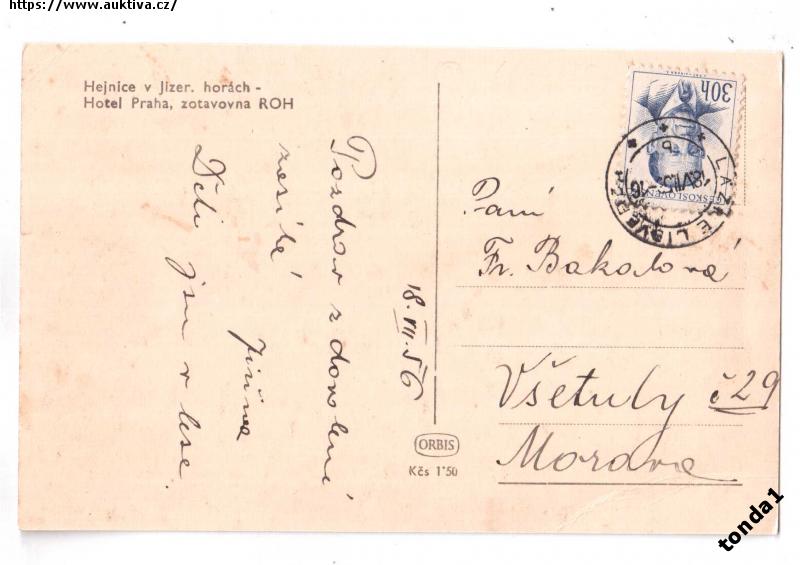 https://www.auktiva.cz/
Hejnice v Jizer. horách -
Hotel Praha, zotavovna ROH
Pozdrav z dovolené
zasílá
Jiřina
Děti jsou v lese.
18.VII.56
ORBIS
Kčs 1'50
30h
ČESKOSLOVENSKO
LÁZNĚ LIBVERDA
Paní
Fr. Bakalová
Všetuly č 29
Morava
tonda1